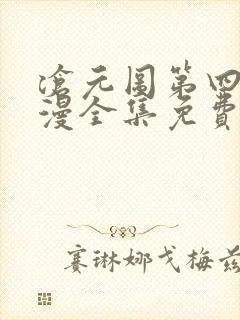 滄元图第四
漫全集免费
赛琳娜戈梅兹